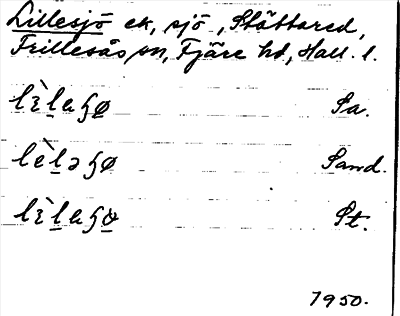 Lillesjö ek, sjö, Stättared,
Frillesås sn, Fjäre hd, Hall. l.
lɛ̀l̲aɧø̲ Sa.
lèl̲əɧø Sand.
lɛ̀l̲aɧø̲ St.
1950.